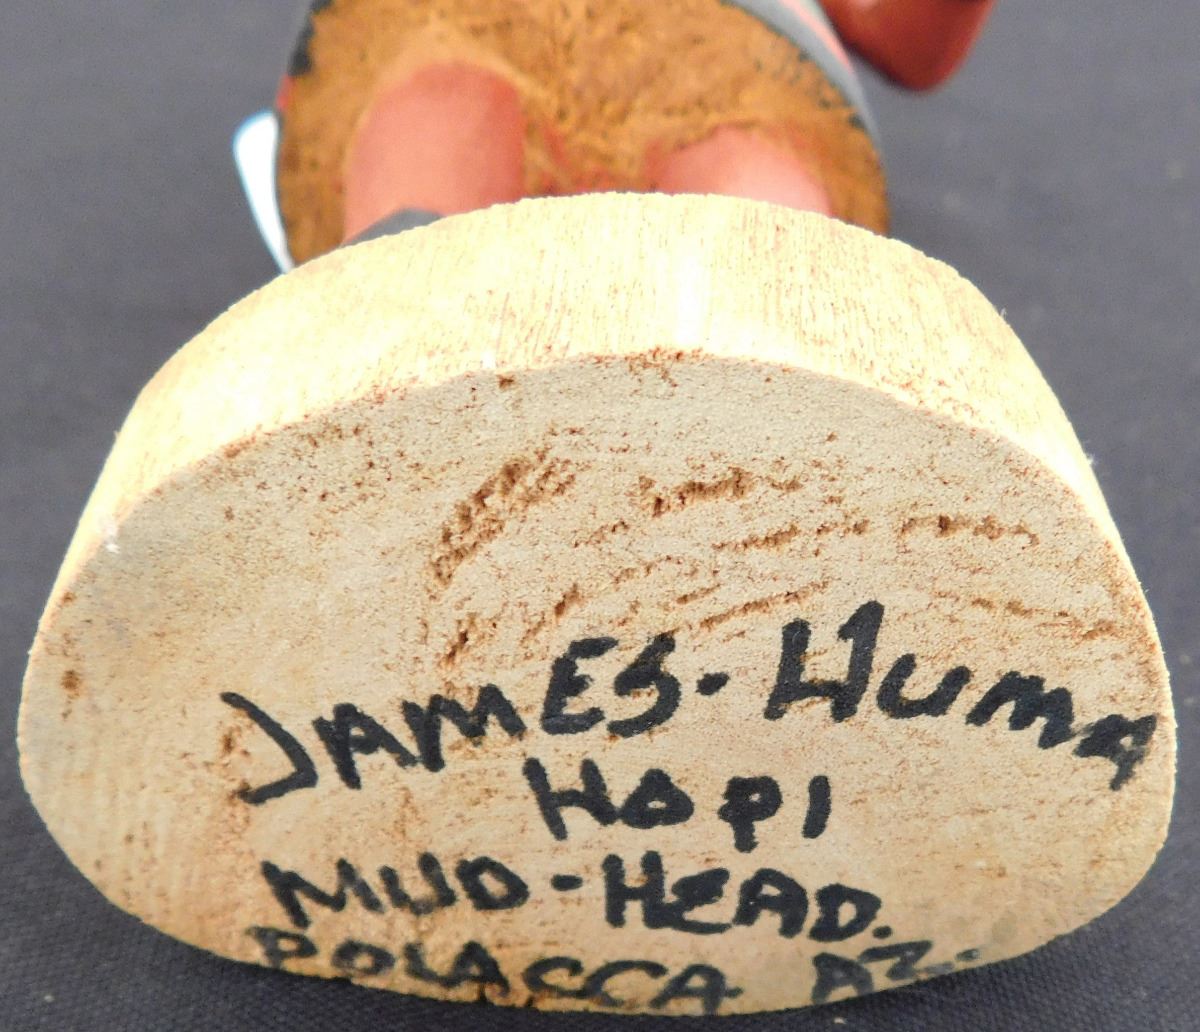 JAMES-HUMA
HOPI
MUD-HEAD.
POLACCA AZ.